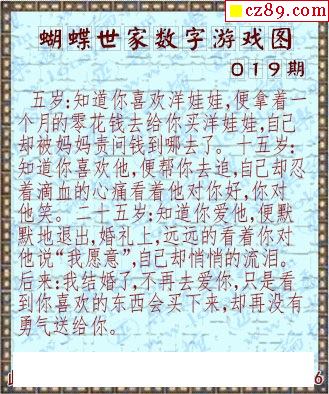 cz89.com
蝴蝶世家数字游戏图
019期
五岁:知道你喜欢洋娃娃,便拿着一
个月的零花钱去给你买洋娃娃,自己
却被妈妈责问钱到哪去了。十五岁:
知道你喜欢他,便帮你去追,自己却忍
着滴血的心痛看着他对你好,你对
他笑。二十五岁:知道你爱他,便默
默地退出,婚礼上,远远的看着你对
他说“我愿意”,自己却悄悄的流泪。
后来:我结婚了,不再去爱你,只是看
到你喜欢的东西会买下来,却再没有
勇气送给你。
6